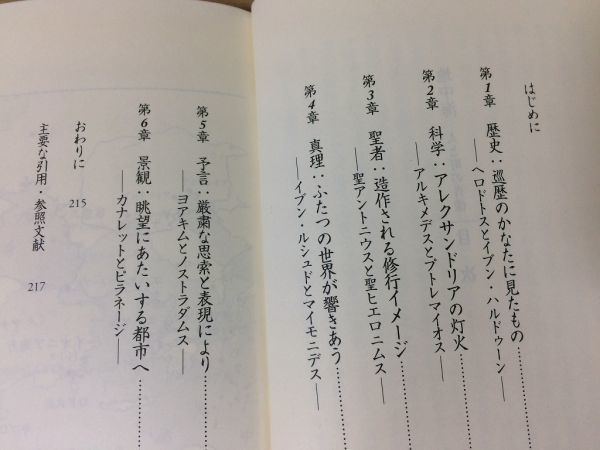 はじめに
第1章　歴史：巡歴のかなたに見たもの…………
――ヘロドトスとイブン・ハルドゥーン――
第2章　科学：アレクサンドリアの灯火…………
――アルキメデスとプトレマイオス――
第3章　聖者：造作される修行イメージ…………
――聖アントニウスと聖ヒエロニムス――
第4章　真理：ふたつの世界が響きあう…………
――イブン・ルシュドとマイモニデス――
第5章　予言：厳粛な思索と表現により…………
――ヨアキムとノストラダムス――
第6章　景観：眺望にあたいする都市へ…………
――カナレットとピラネージ――
おわりに　215
主要な引用・参照文献　217